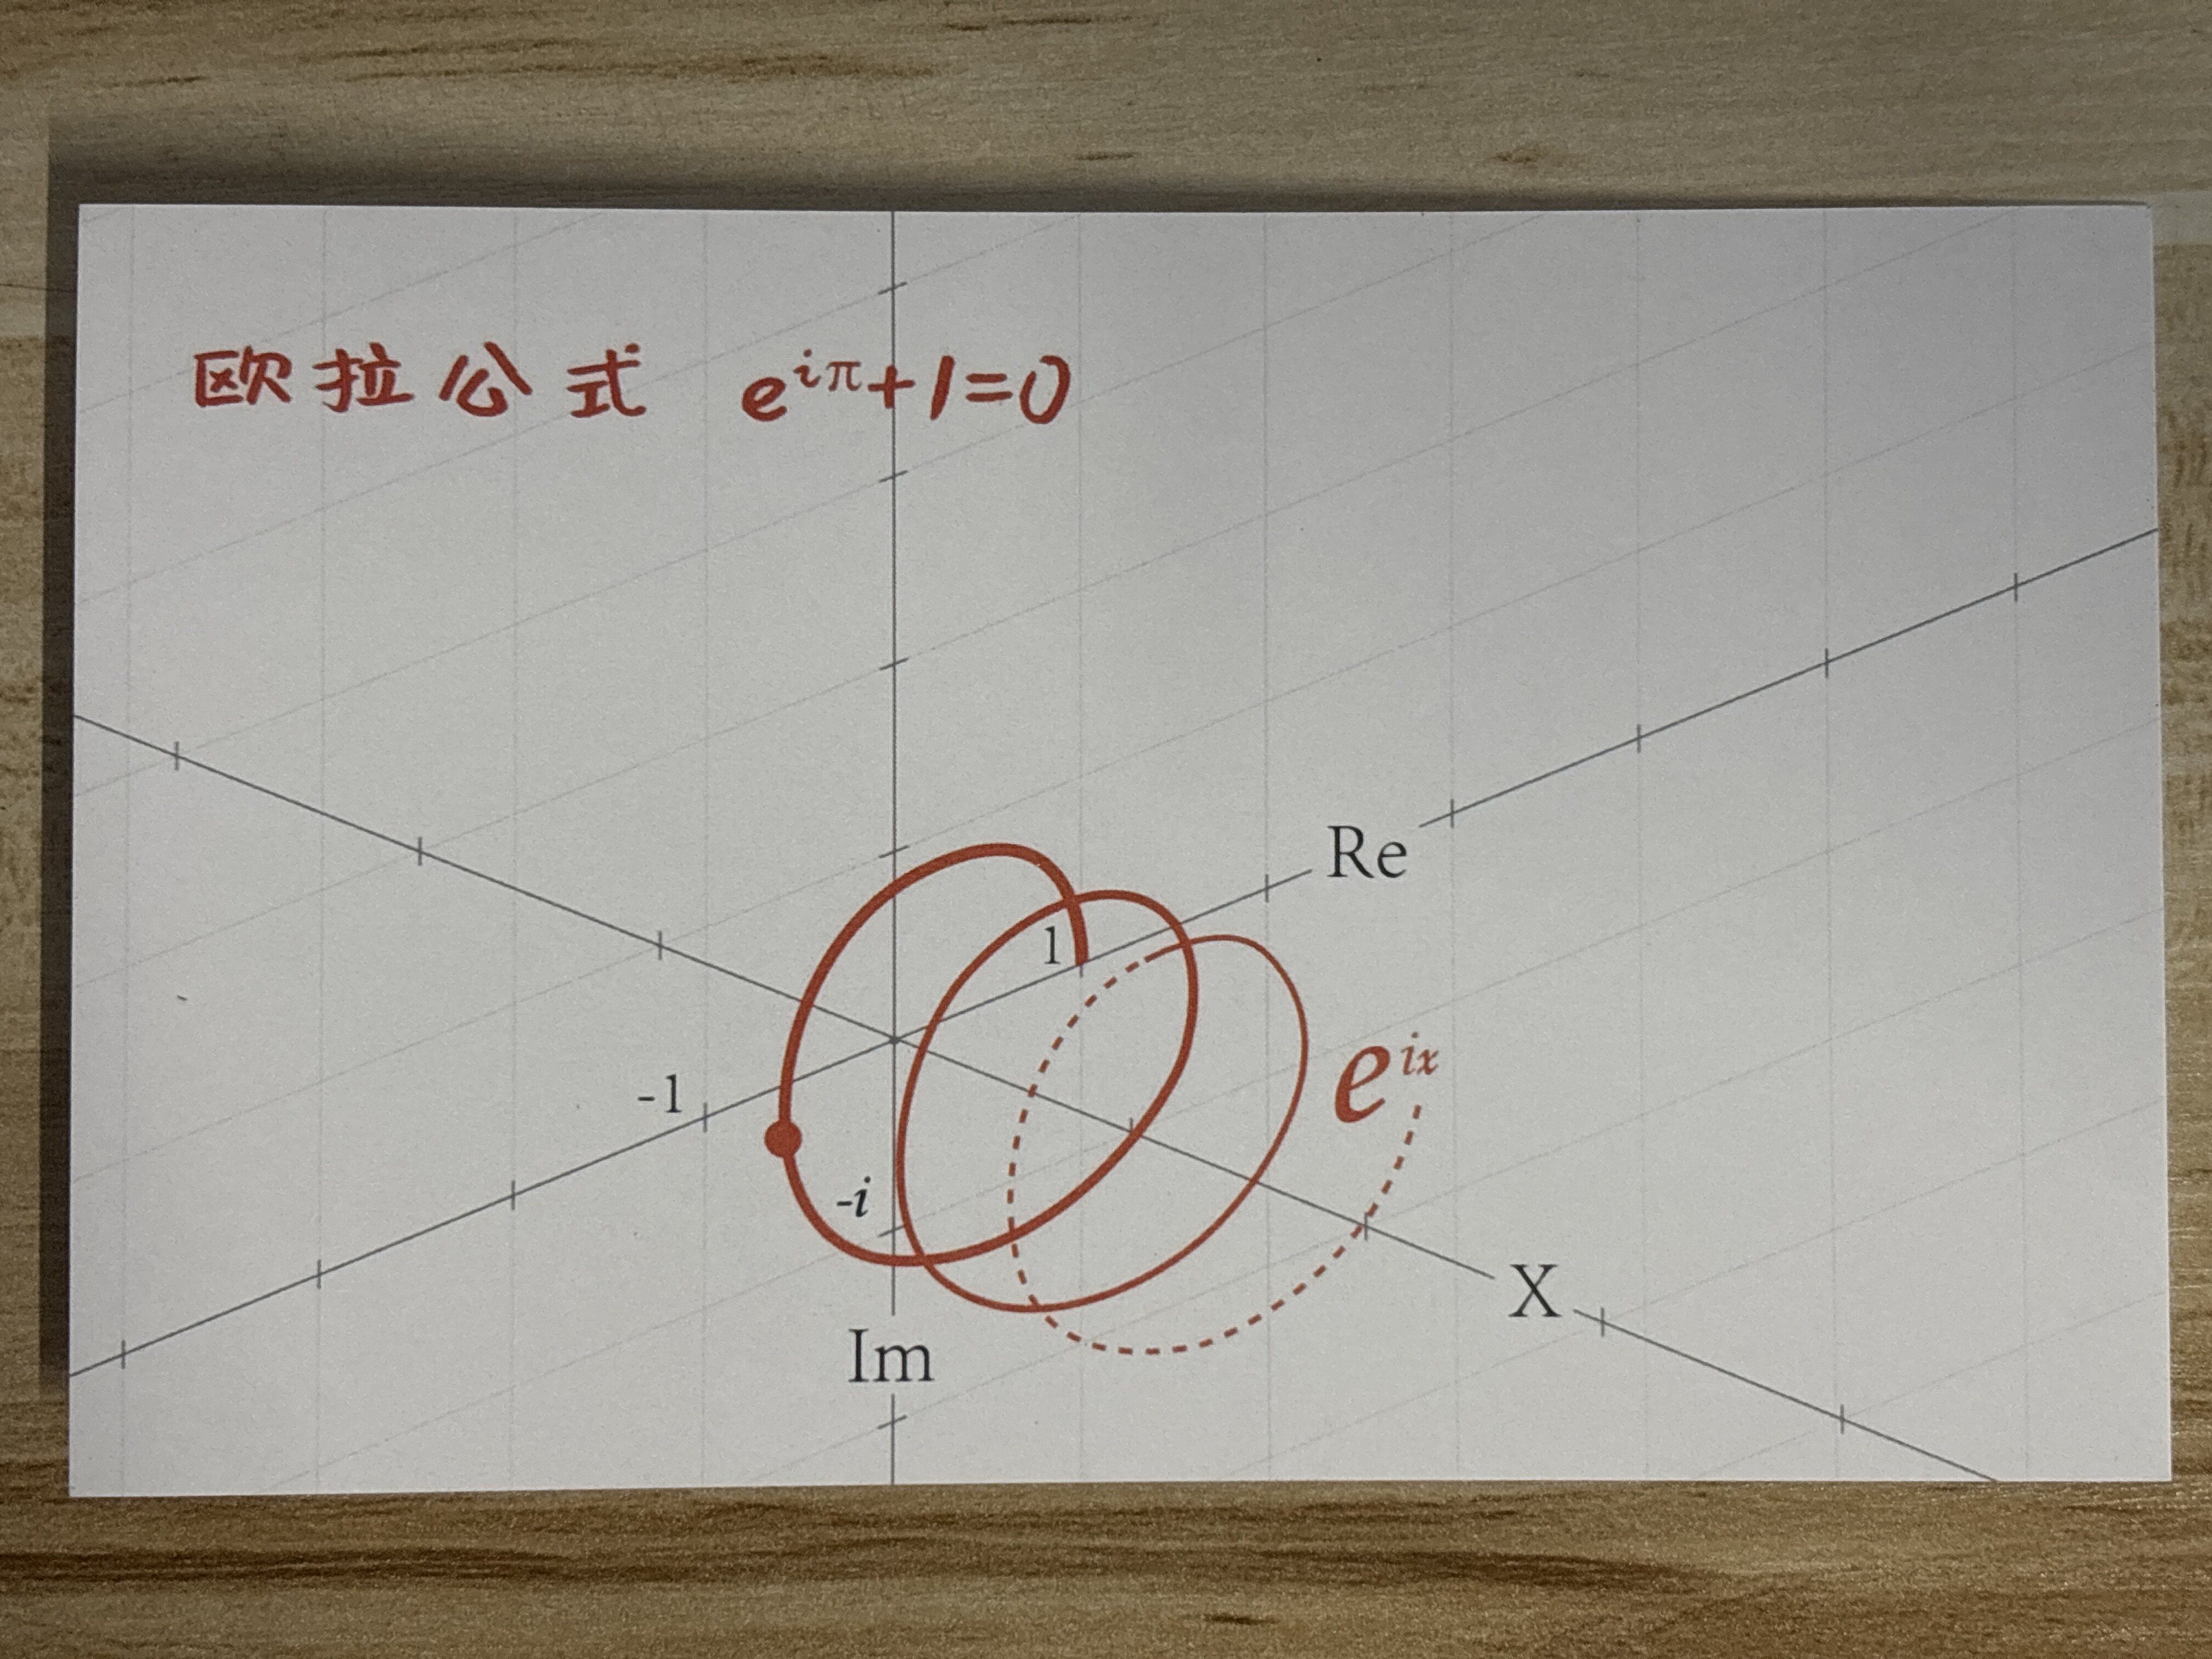 欧拉公式 e^{iπ}+1=0
Re
1
e^{ix}
-1
-i
X
Im